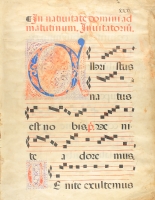 xxx
In nativitate domini ad
matutinum, Invitatoriū.
Christus
natus
est nobis, veni
te adoremus
Venite exultemus